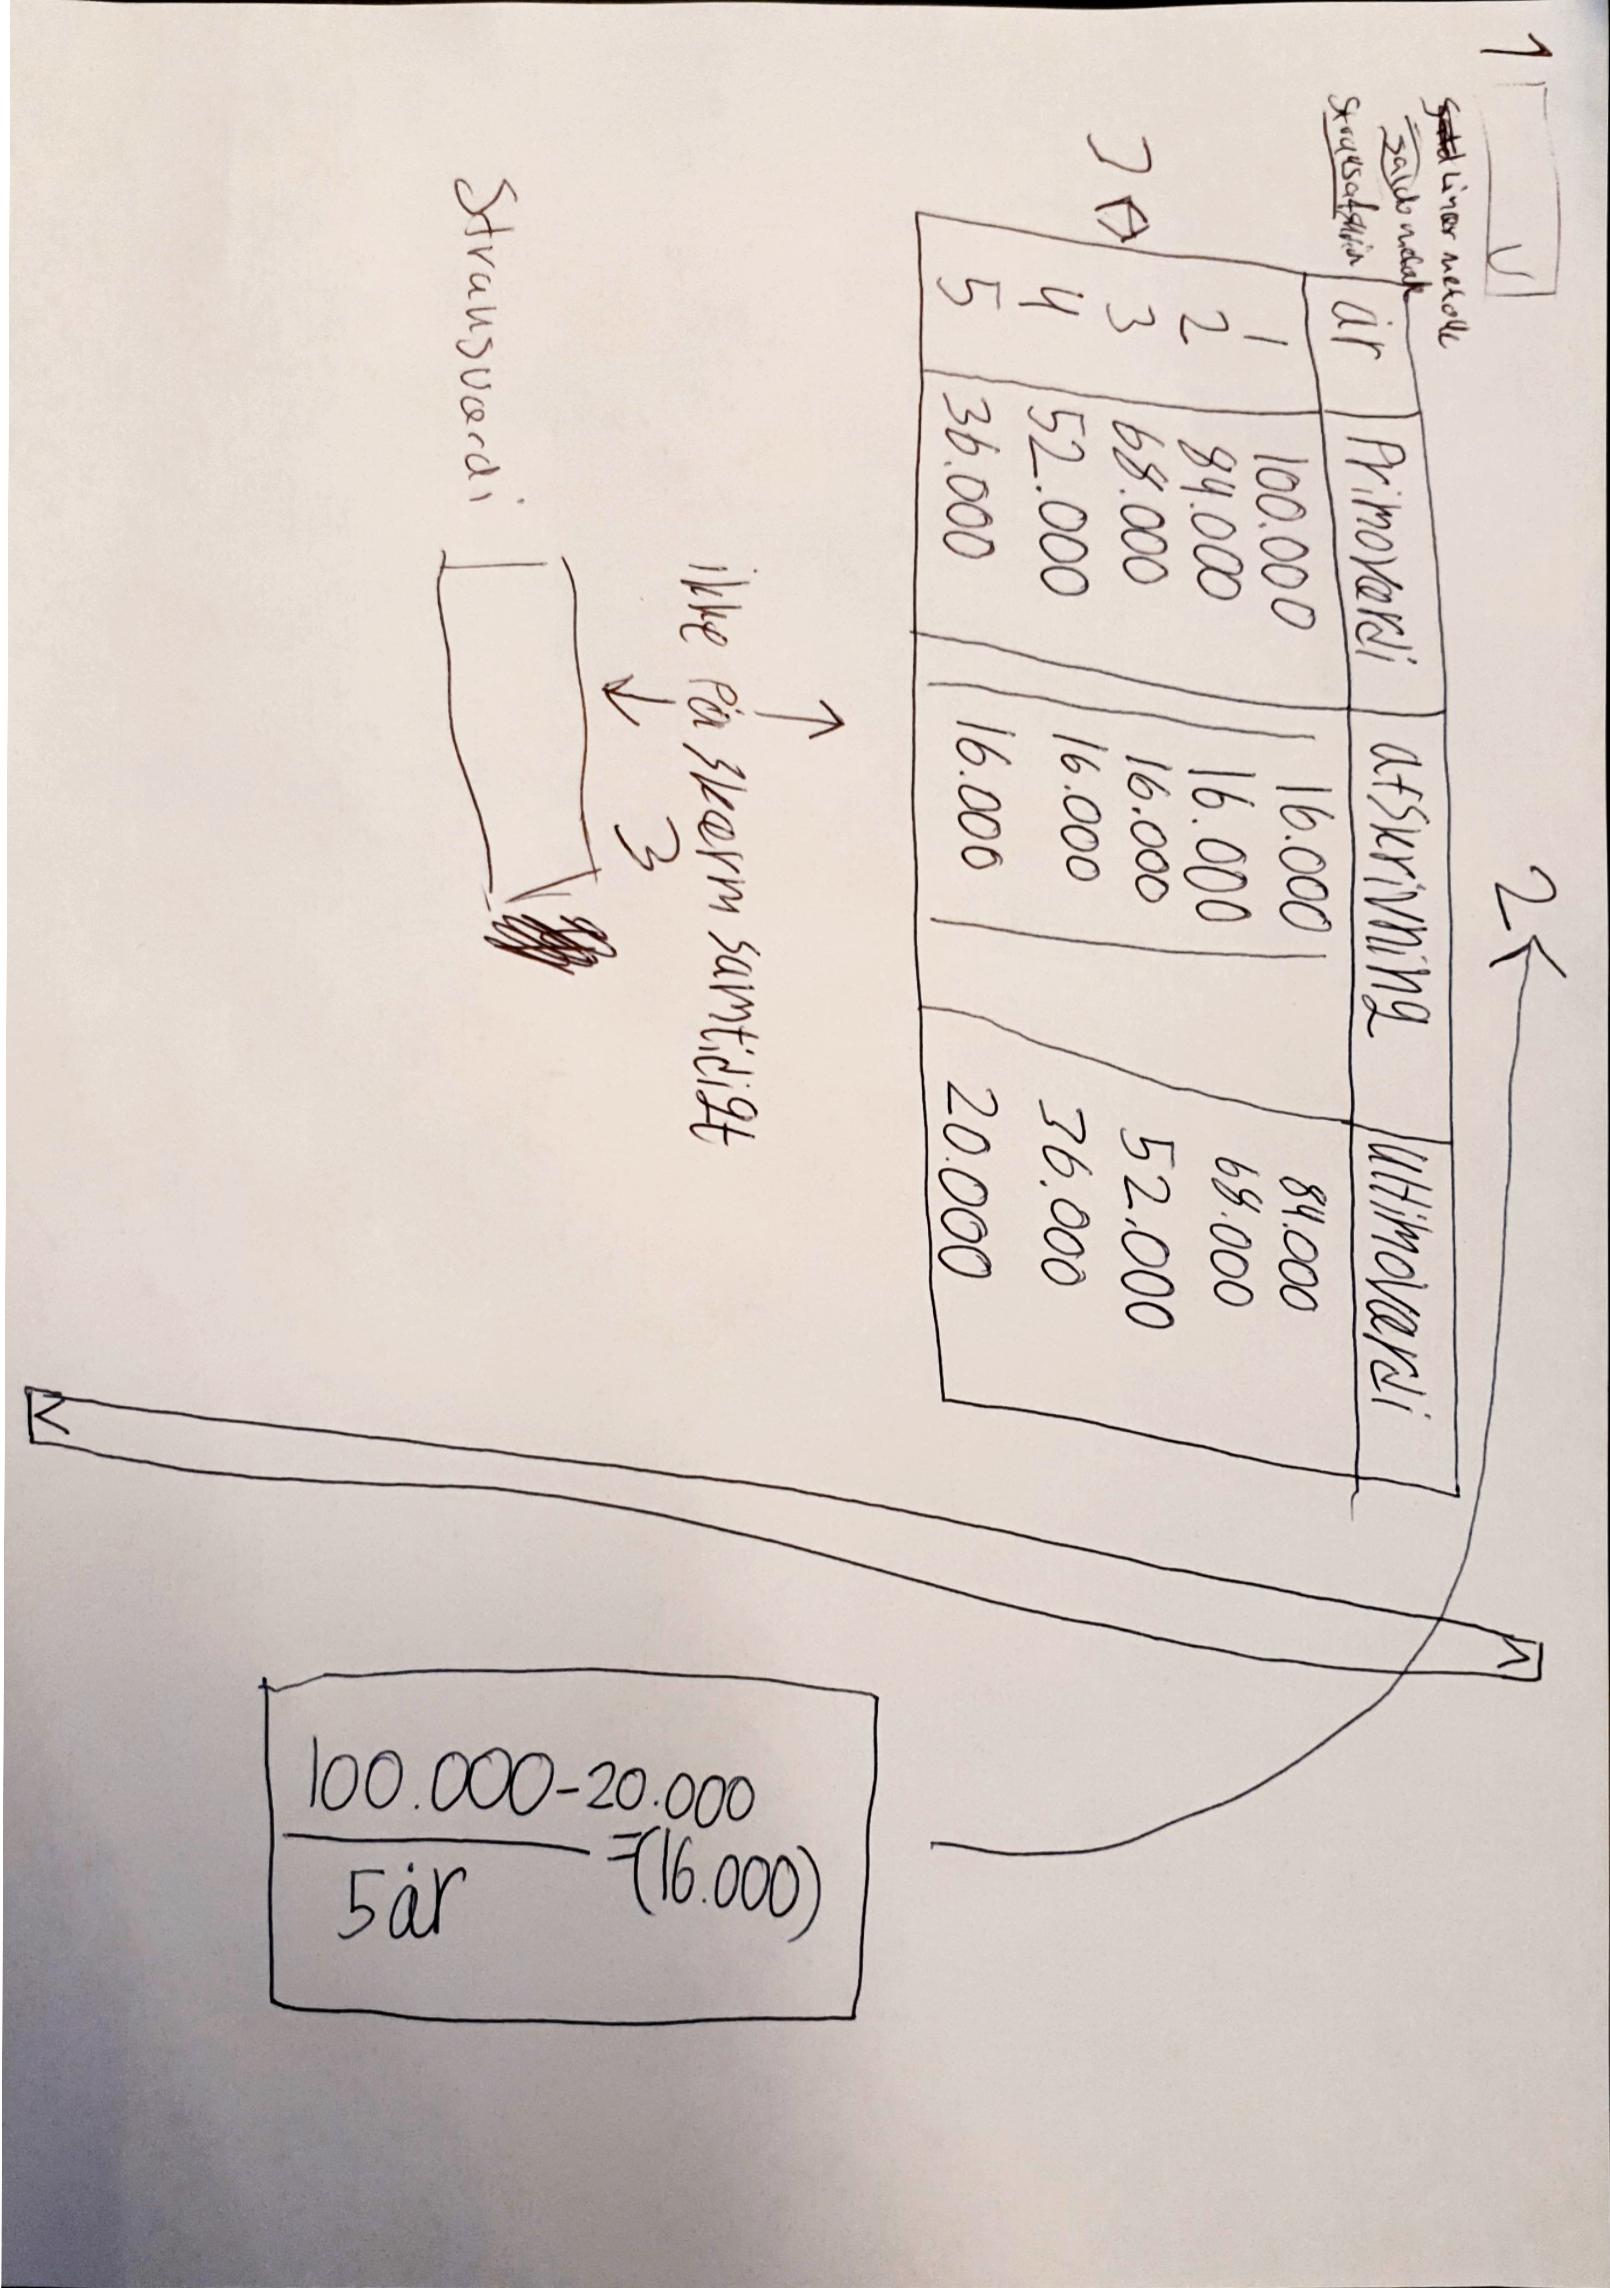 1
Linær metode
= saldometode
straksafskriv
2
år Primoværdi afskrivning Ultimoværdi
1 100.000 16.000 84.000
2 84.000 16.000 68.000
3 68.000 16.000 52.000
4 52.000 16.000 36.000
5 36.000 16.000 20.000
3A
ikke på skærm samtidigt
3
Straksværdi
100.000-20.000
=(16.000)
5 år